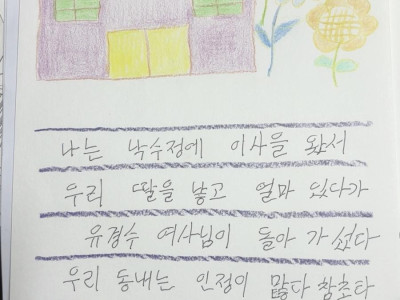 나는 낙수정에 이사을 왔서
우리 딸을 놓고 얼마 있다가
유경수 여사님이 돌아 가셨다
우리 동내는 인정이 많다